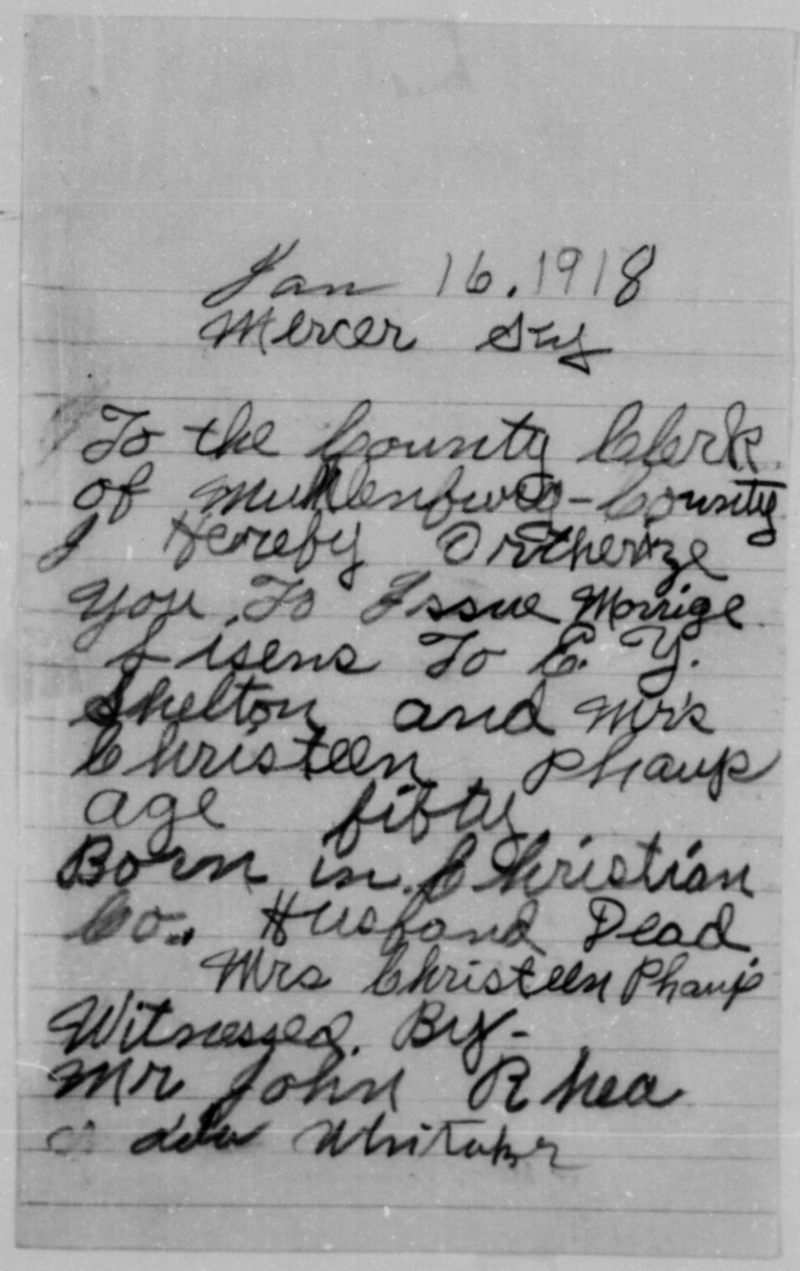 Jan 16.1918
Mercer Ky
To the County Clerk
of Muhlenburg-County
I Hereby Ortherize
you To Issue Marrige
Lisens To E. Y.
Shelton and Mrs
Christeen Phaup
age fifty
Born in Christian
Co., Husband Dead
Mrs Christeen Phaup
Witnessed. By-
Mr John Rhea
Whitaker